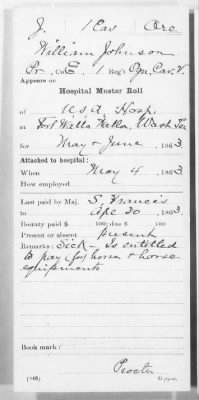 J. 1 Cav Ore
William Johnson
Pr., Co. E, 1 Reg't Ogn. Cav. V.
Appears on
Hospital Muster Roll
of U.S.A. Hosp.
at Fort Walla Walla, Wash. Ter
for May & June, 1863
Attached to hospital:
When May 4, 1863
How employed
Last paid by Maj. S. Francis
to Apr 30, 1863
Bounty paid $ 100; due $ 100
Present or absent present
Remarks: Sick - Is entitled
to pay for horse & horse
equipments
Book mark:
Procter
(448) Copyist.